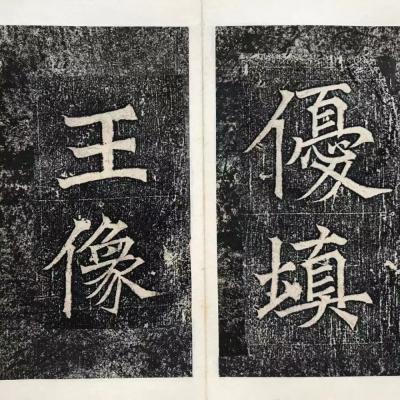 優填
王像